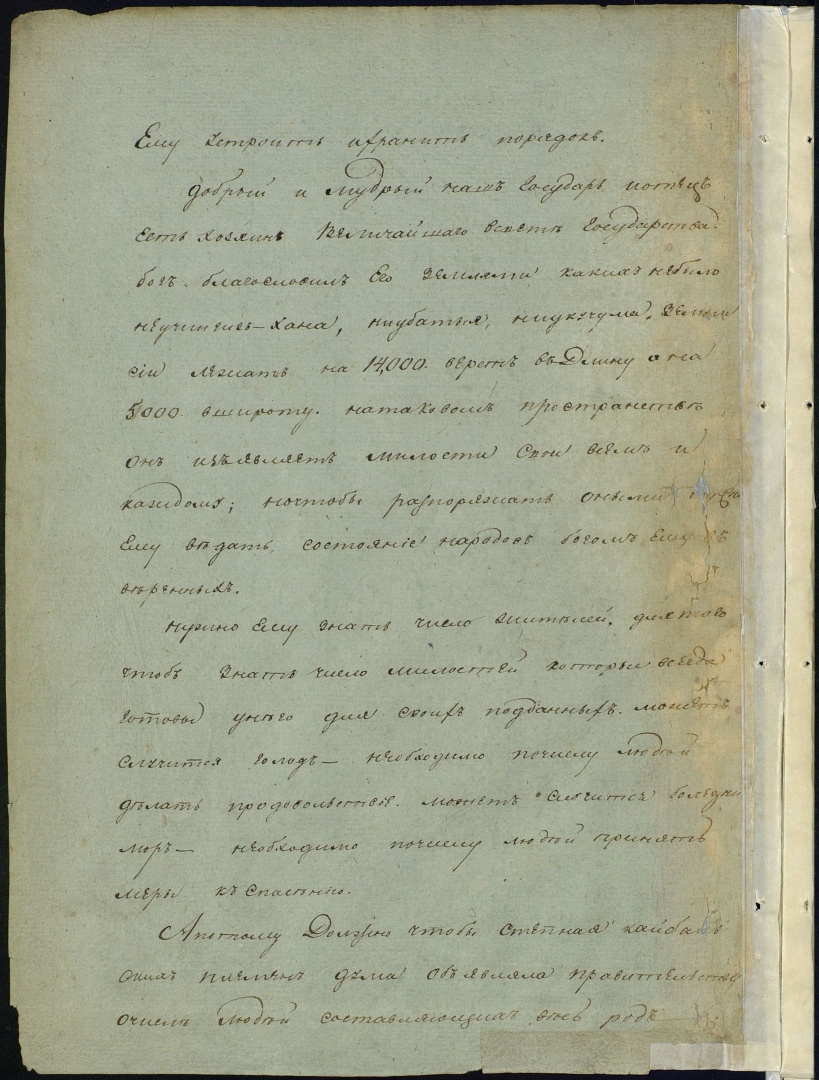 Ему устроить ихранить порядокъ.
добрый и мудрый нашъ Государь иотецъ
есть хозяинъ Величайшаго всветѣ Государства.
богъ благословилъ Его землями какихъ небыло
неучингисъ-Хана, ниубатыя, ниукучума. Земли
сіи лежатъ на 14,000. верстъ въ Длину а на
5000. вшироту. натаковомъ пространствѣ
онъ изъявляетъ милости Свои всемъ и
каждому; ночтобы распоряжать оными
Ему вѣдать состояніе народовъ богомъ Ему
вѣренныхъ.
нужно Ему знать число жителей. длятого
чтобъ знать число милостей которые всегда
готовы унего для своихъ подданныхъ. можетъ
случится голодъ— необходимо почислу людей
дѣлать продовольствіе. можетъ случится
моръ— необходимо почислу людей принять
меры къ спасенію.
Апотому Должно чтобы степная
племенъ дума объявляла правительству
очислѣ людей составляющихъ весь родъ